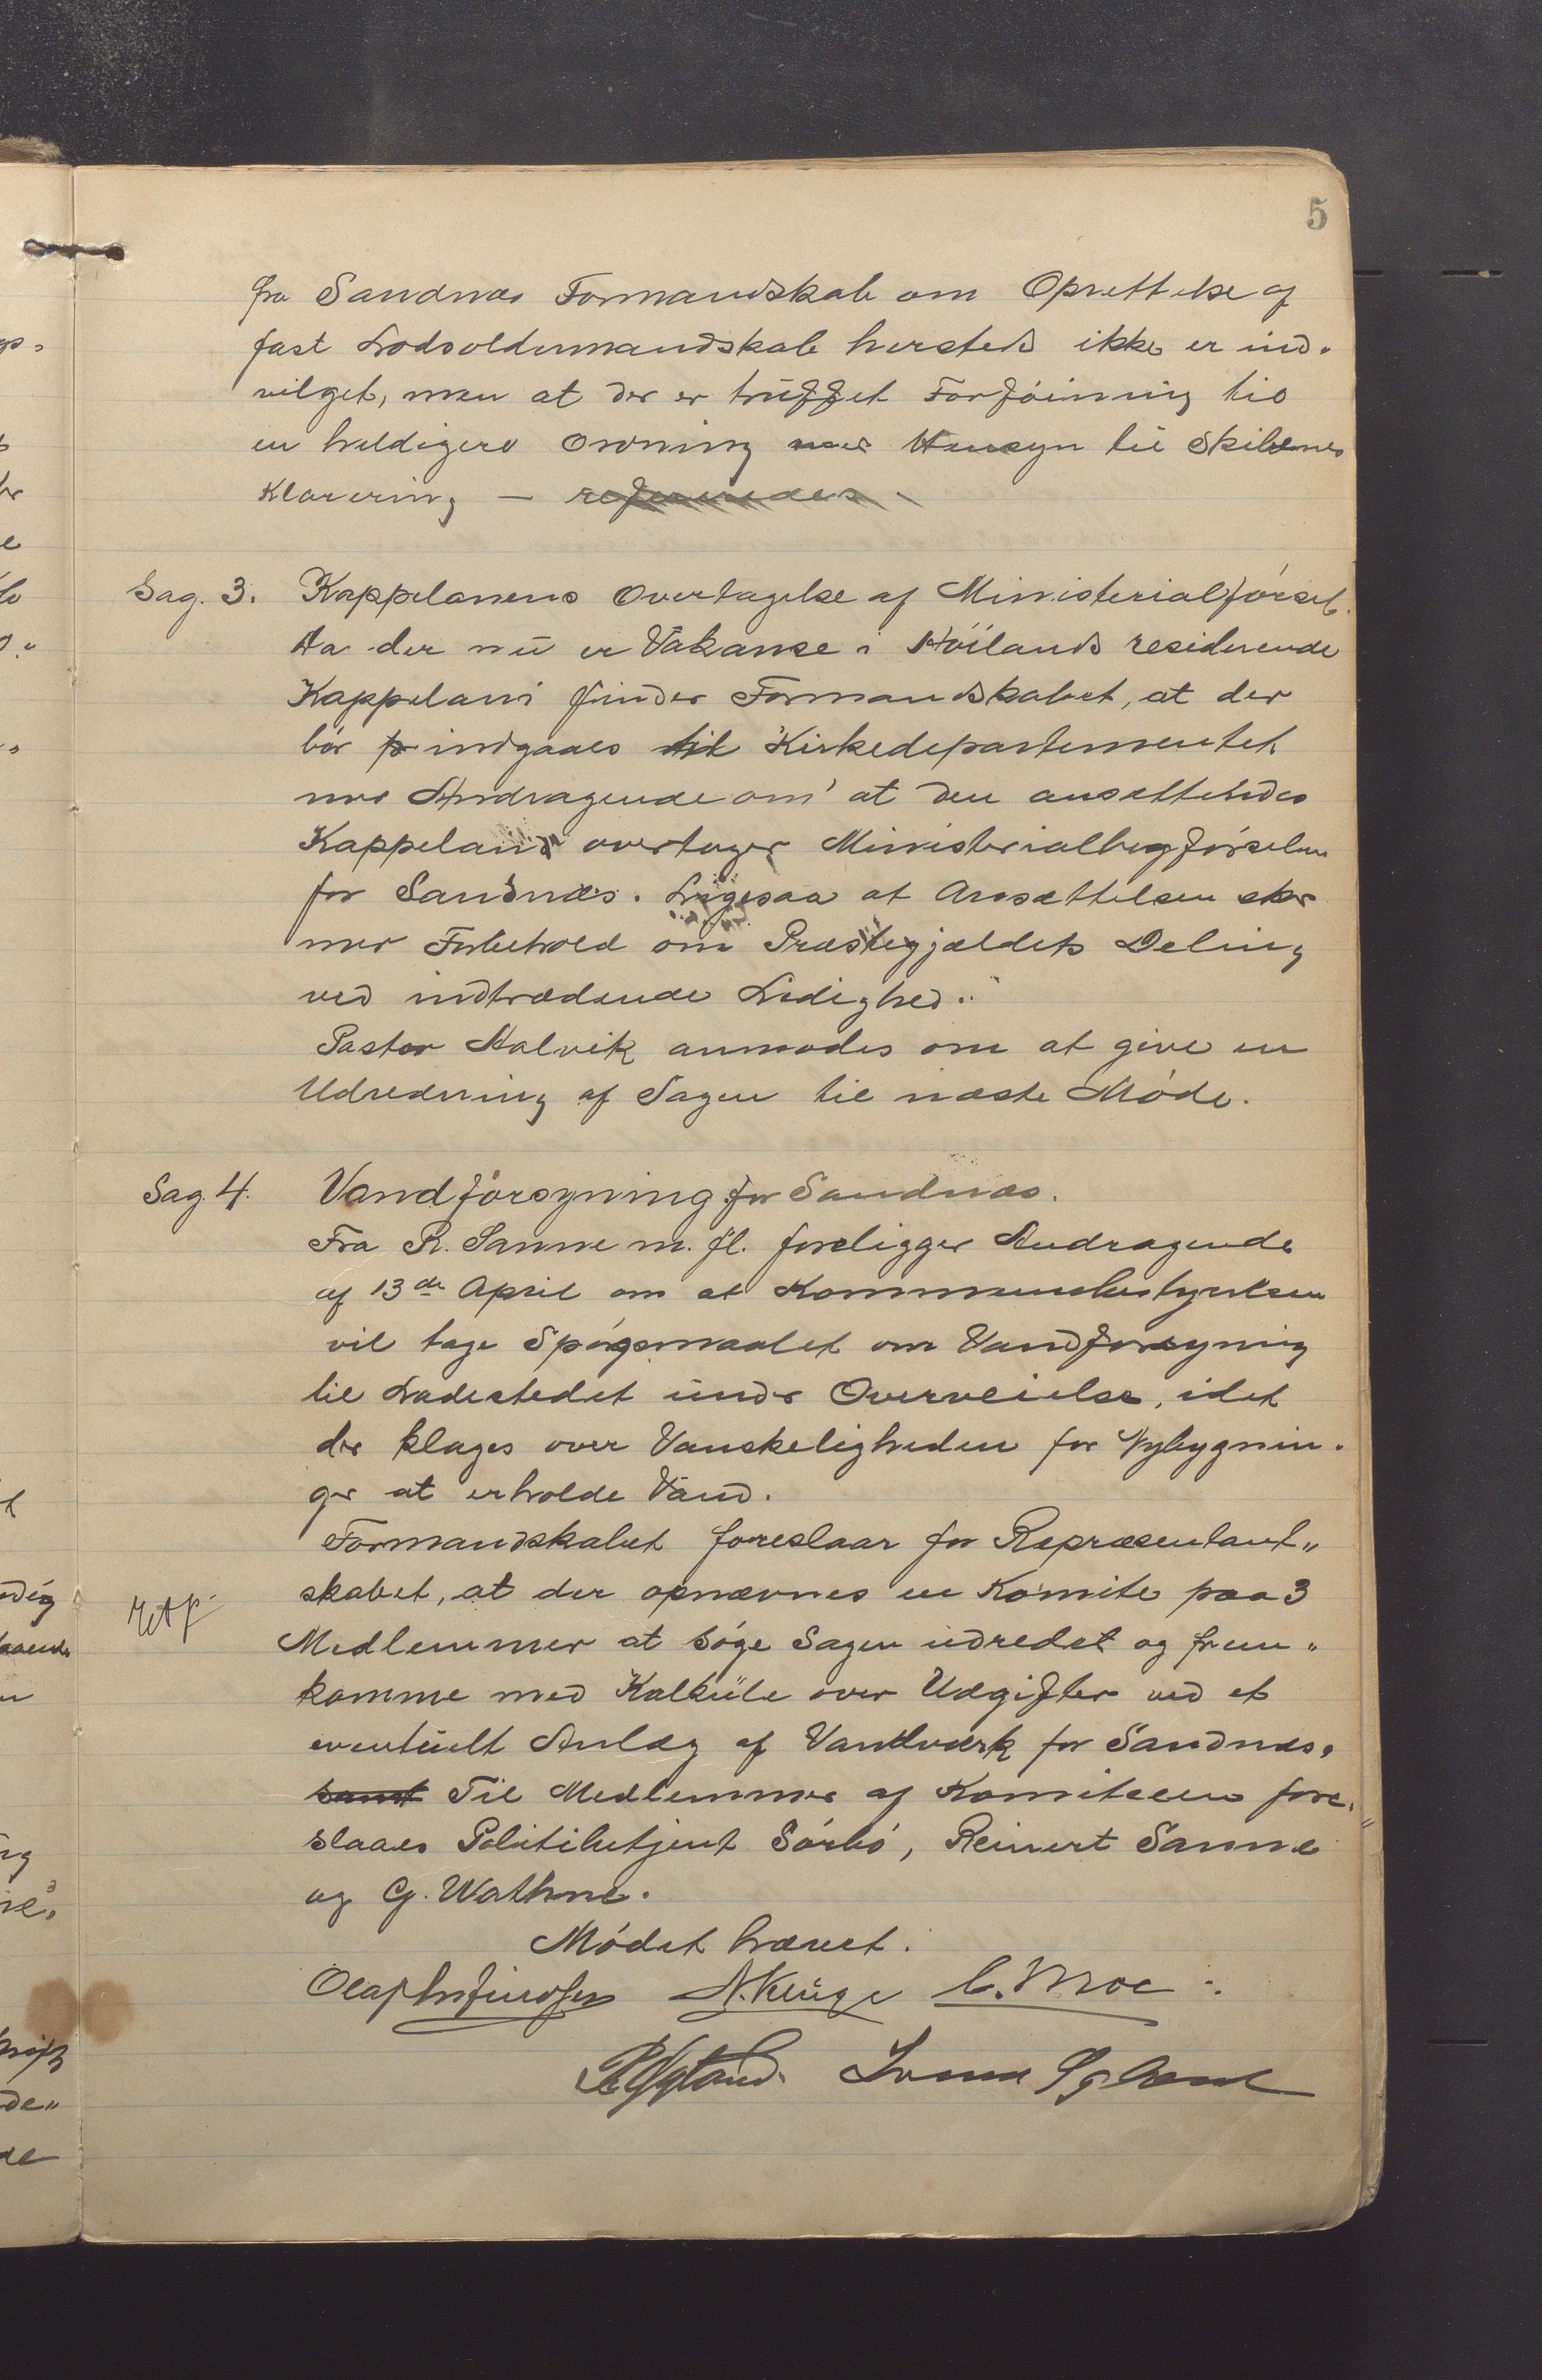 5
fra Sandnæs Formandskab om Oprettelse af
fast Lodsoldermandskab hersteds ikke er ind-
vilget, men at der er truffet Forføining til
en heldigere Ordning med Hensyn til Skibenes
Klarering — refereredes.
Sag. 3. Kappelanens Overtagelse af Ministerialførsel.
Da der nu er Vakanse i Høilands residerende
Kappelani finder Formandskabet, at der
bør indgaaes til Kirkedepartementet
med Andragende om at den ansættendes
Kappelan overtager Ministerialbogførselen
for Sandnæs. Ligesaa at Ansættelsen sker
med Forbehold om Præstegjældets Deling
ved indtrædende Ledighed.
Pastor Halvik anmodes om at give en
Udredning af Sagen til næste Møde.
Sag. 4. Vandforsyning for Sandnæs.
Fra R. Sanne m. fl. foreligger Andragende
af 13de April om at Kommunebestyrelsen
vil tage Spørgsmaalet om Vandforsyning
til Ladestedet under Overveielse, idet
der klages over Vanskeligheden for Nybygnin-
ger at erholde Vand.
Formandskabet foreslaar for Repræsentant„
skabet, at der opnævnes en Komite paa 3
Medlemmer at søge Sagen udredet og frem„
komme med Kalkule over Udgifter ved et
eventuelt Anlæg af Vandværk for Sandnæs.
samt Til Medlemmer af Komiteen fore„
slaaes Politibetjent Sørbø, Reinert Sanne
og G. Wathne.
Mødet hævet.
A. Kluge C. Moe